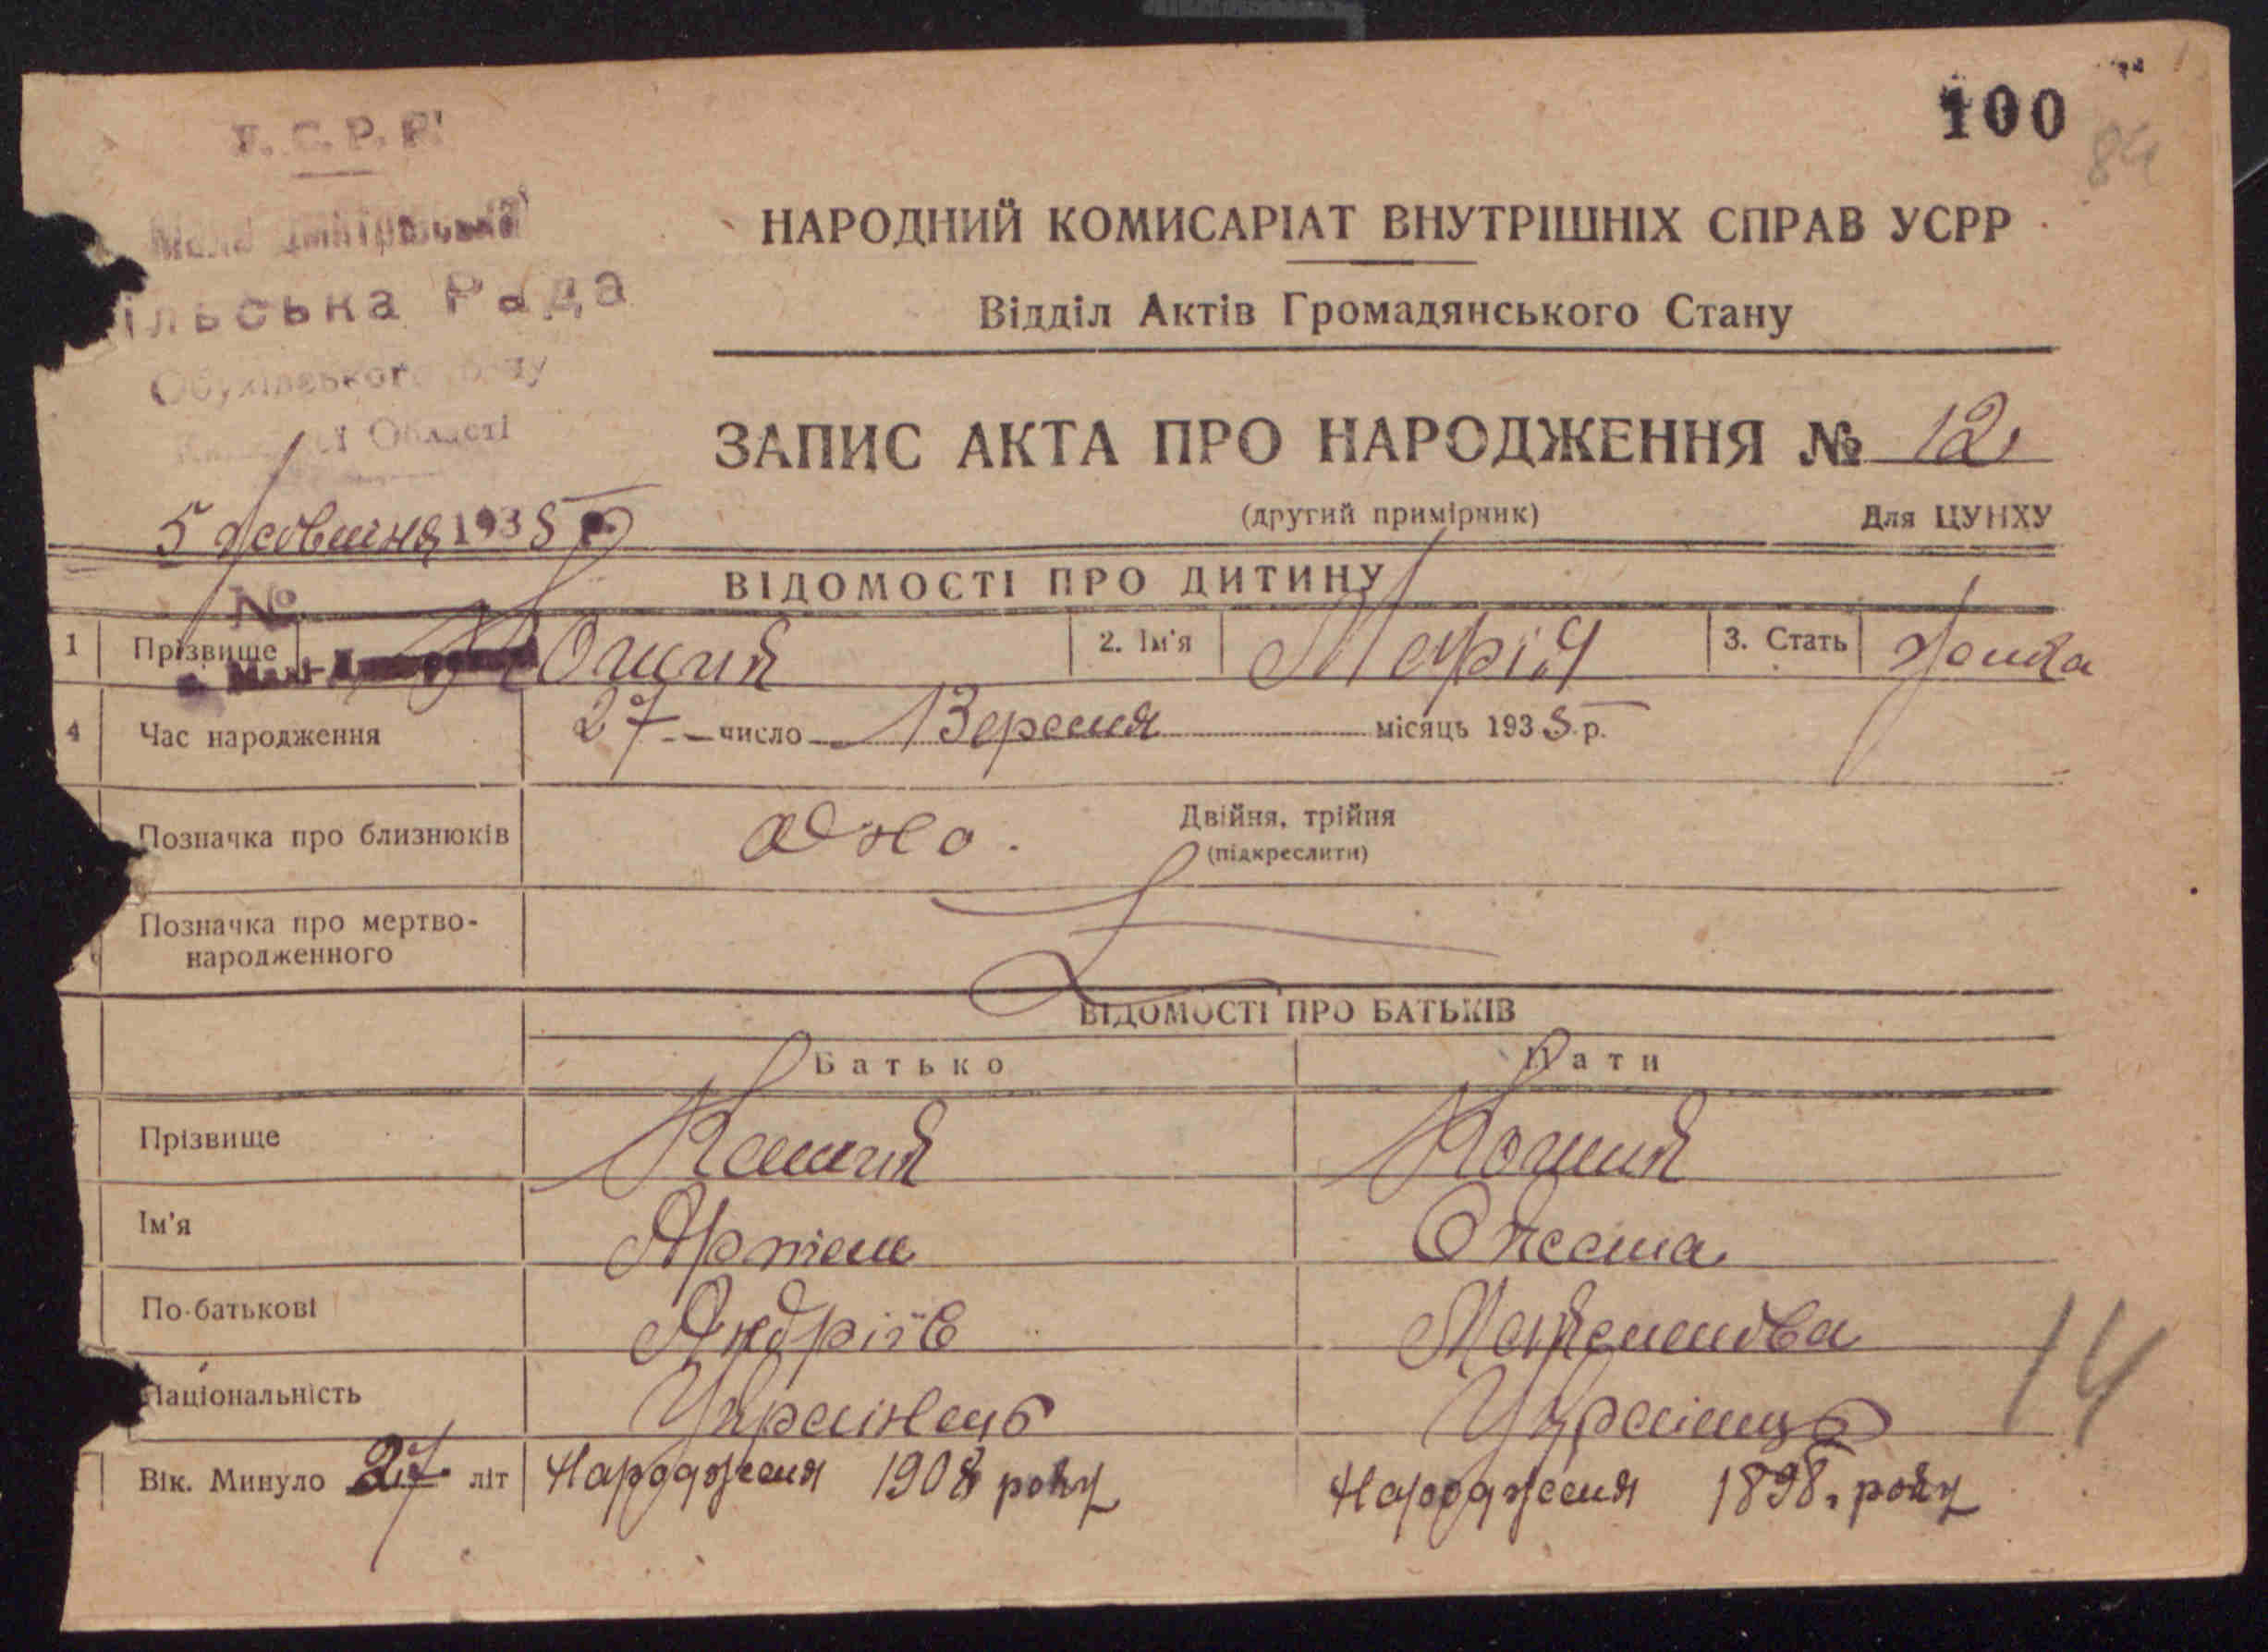 У.С.Р.Р.
100
84
Мало Дмитрівська
ільська Рада
НАРОДНИЙ КОМИСАРІАТ ВНУТРІШНІХ СПРАВ УСРР
Відділ Актів Громадянського Стану
Обухівського р-ну
Області
ЗАПИС АКТА ПРО НАРОДЖЕННЯ № 12
(другий примірник) Для ЦУНХУ
5 Жовтня 1935 р
ВІДОМОСТІ ПРО ДИТИНУ
№
1 Прізвище 2. Ім'я Марія 3. Стать Жоиka
4 Час народження 27 число Вересня місяць 1935 р.
Позначка про близнюків Одно. Двійня, трійня
(підкреслити)
Позначка про мертво-
народженного
ВІДОМОСТІ ПРО БАТЬКІВ
Батько Мати
Прізвище
Ім'я Артем
По-батькові Андріїв
Національність Українець Українць
14
Вік. Минуло 27 літ Народження 1908 року Народження 1898. року